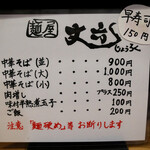 麺屋 丈六
じょうろく
早寿司
150円
中華そば（並）・・・900円
中華そば（大）・・・1,000円
中華そば（小）・・・800円
肉増し・・・プラス250円
味付半熟煮玉子・・・100円
ご飯・・・200円
注意「麺硬め」等お断りします